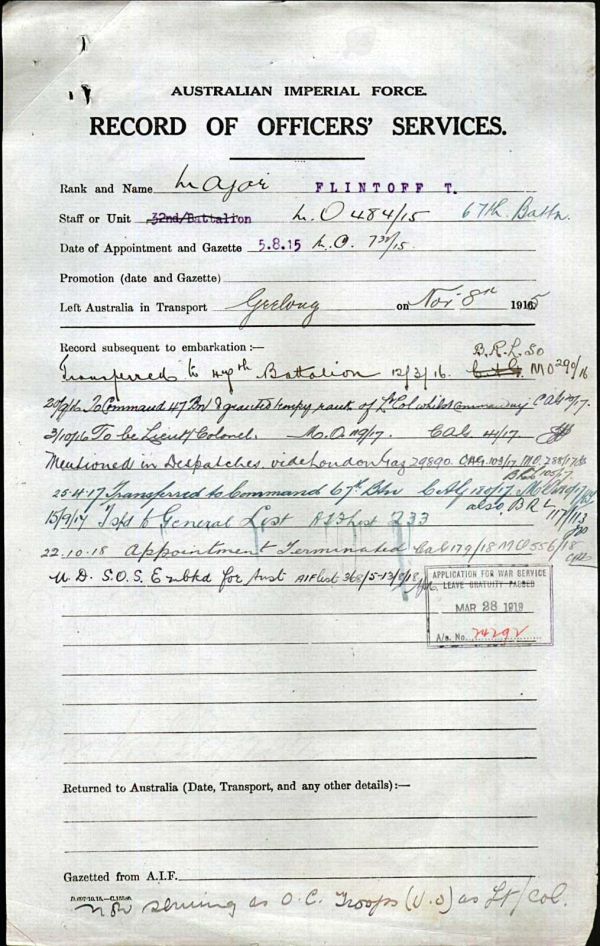 AUSTRALIAN IMPERIAL FORCE.
RECORD OF OFFICERS' SERVICES.
Rank and Name Major FLINTOFF T.
Staff or Unit 32nd/Battalion M.O 484/15 67th. Battn.
Date of Appointment and Gazette 5.8.15 M.O. 732/15.
Promotion (date and Gazette)
Left Australia in Transport Geelong on Nov 8th 1915
Record subsequent to embarkation:—
B.R.L. 50
Transferred to Battalion 12/3/16. M O 290/16
To Command 47 Bn & granted tempy rank of Lt Col whilst commanding CAG
3/10/16 To be Lieut Colonel. M.O. 119/17. CAG. 41/17.
Mentioned in Despatches. vide London Gaz 29890. CAG. 103/17. M.O.
25.4.17 Transferred to Command 67th Btn CAG 180/17
also BRL
15/9/17 Tsfd to General List AIF List 233
22.10.18 Appointment Terminated CAG 179/18 MO 556/18
M.D. S.O.S. Embkd for Aust AIF List 368/5-13/8/18
APPLICATION FOR WAR SERVICE
LEAVE GRATUITY PASSED
MAR 28 1919
A/s. No. 24292
Returned to Australia (Date, Transport, and any other details):—
Gazetted from A.I.F.
now serving as O.C. Troops (V.O) as Lt/Col.